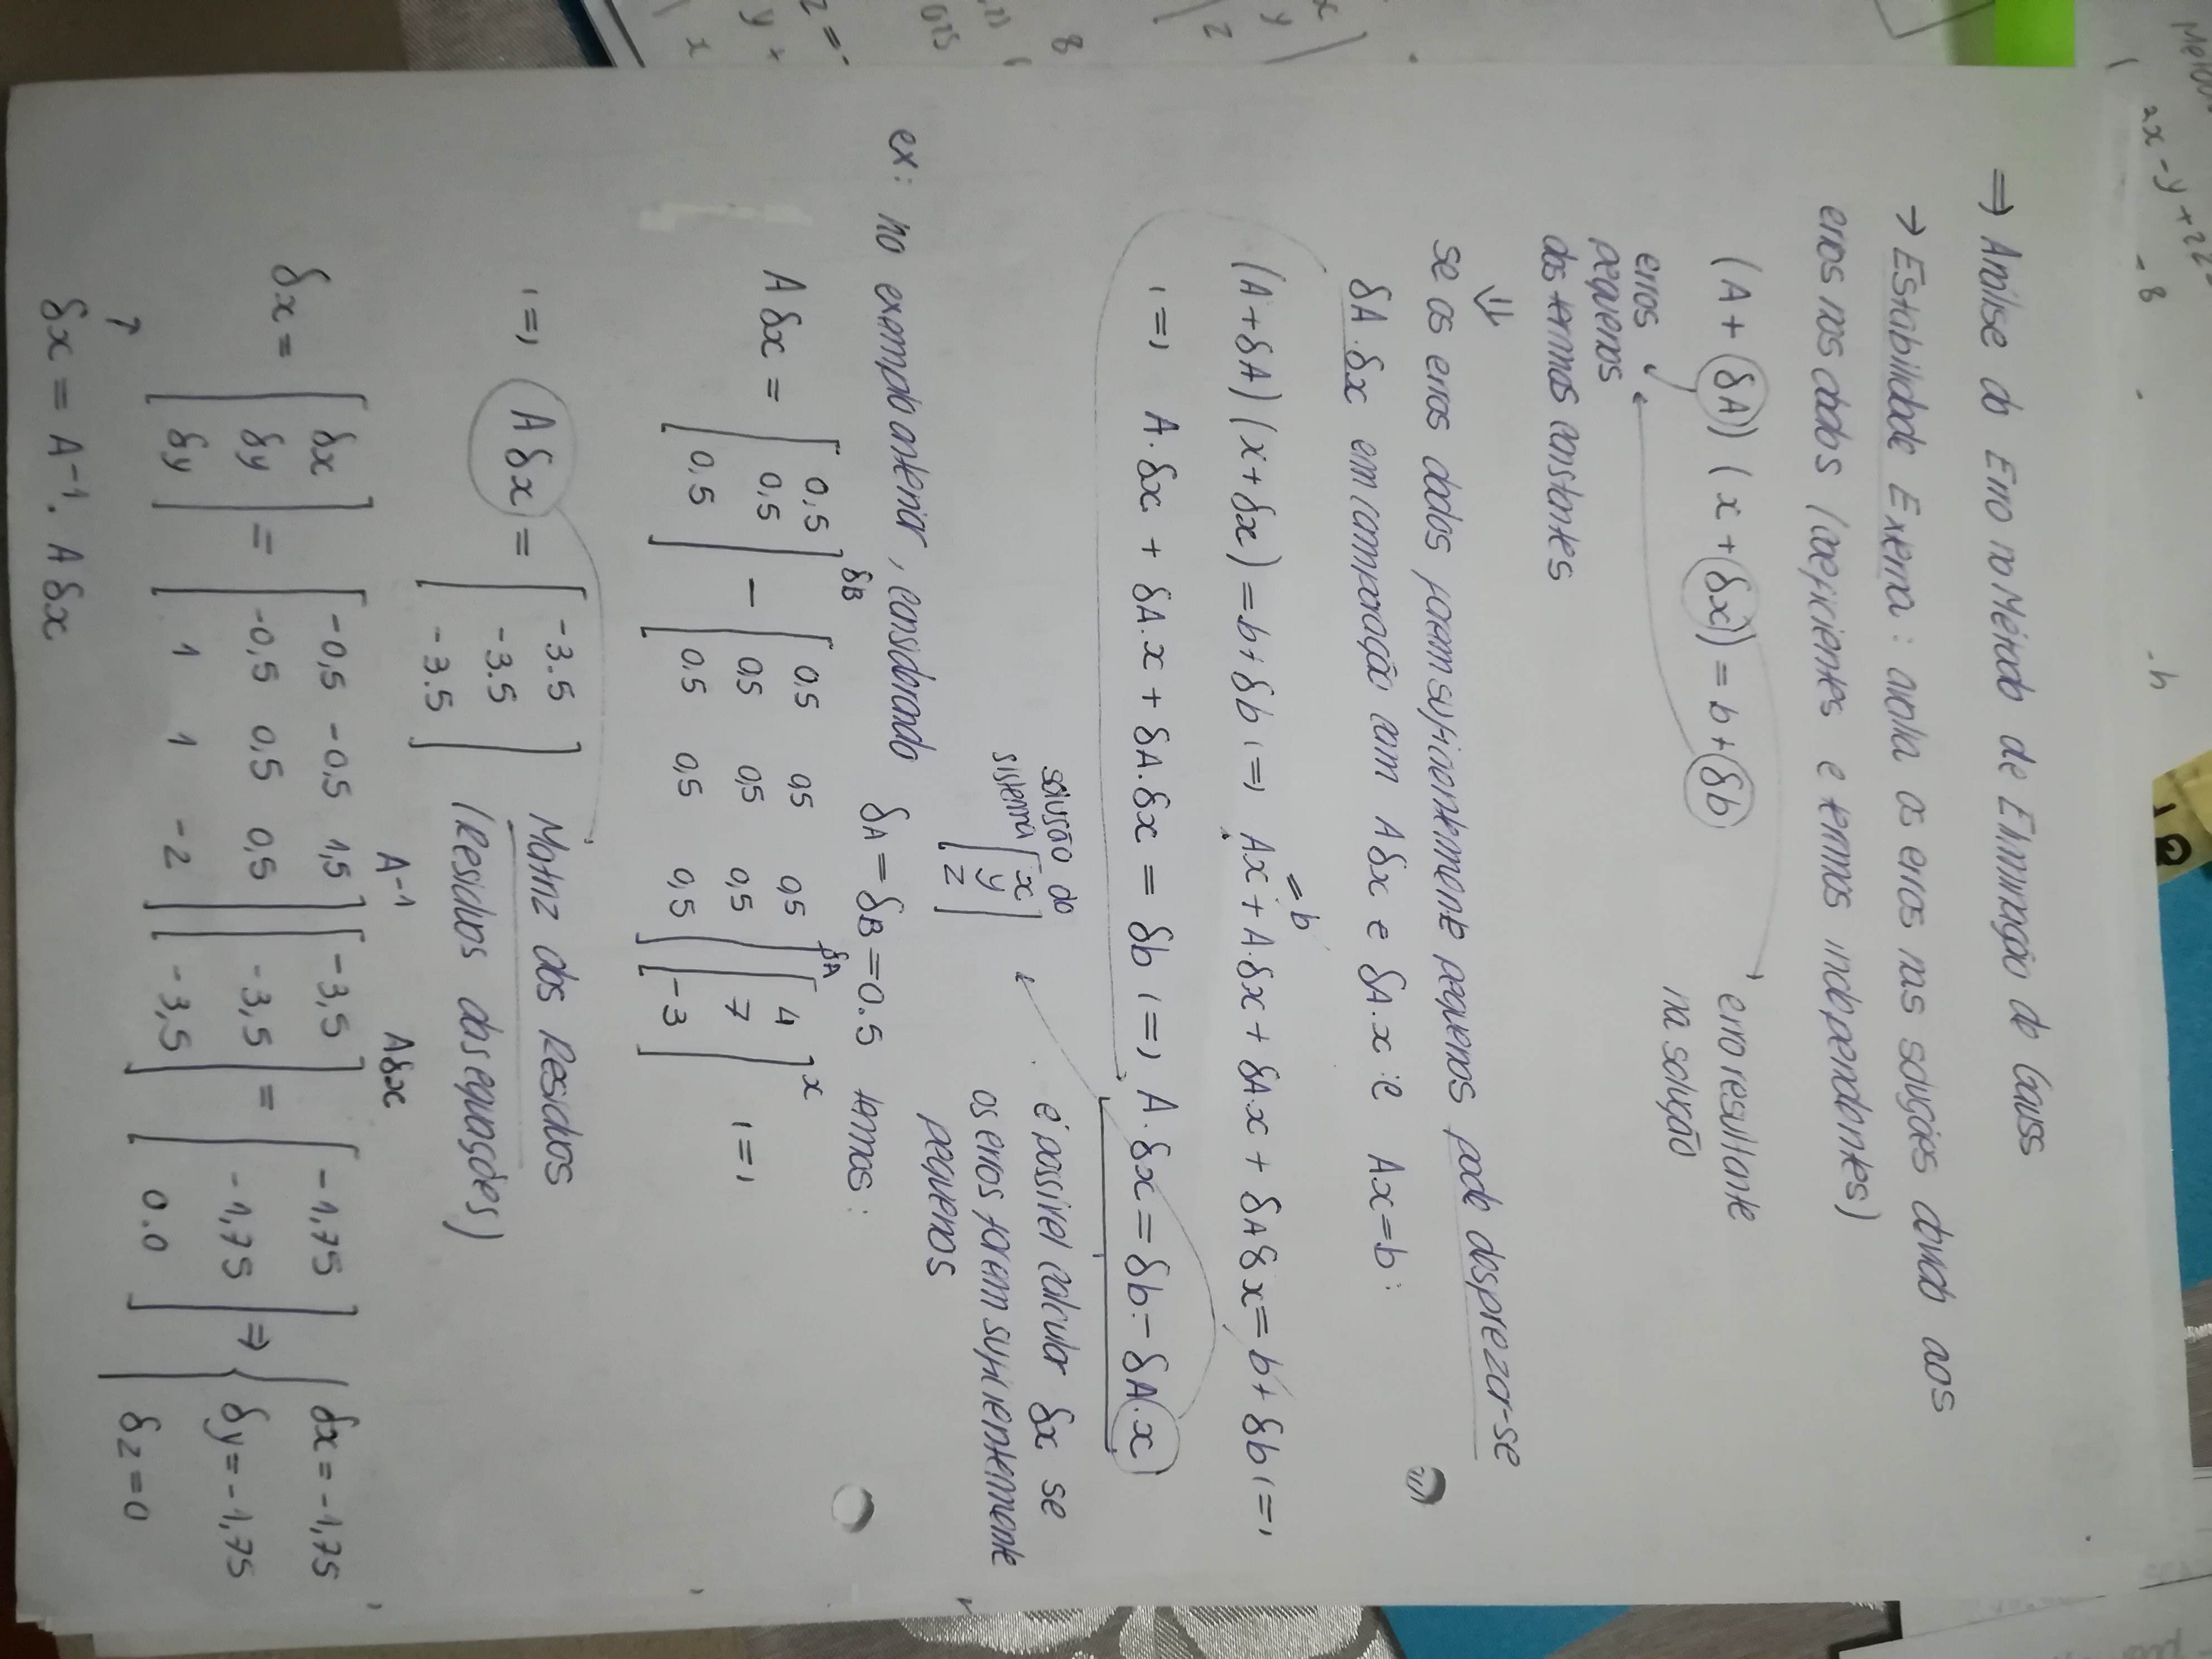 2x-y+2z
-8
-4
⇒ Análise do Erro no Método de Eliminação de Gauss
→ Estabilidade Externa: avalia os erros nas soluções devido aos
erros nos dados (coeficientes e termos independentes)
(A + δA) (x + δx) = b + δb
erro resultante
na solução
erros
pequenos
dos termos constantes
⇓
se os erros dados forem suficientemente pequenos pode desprezar-se
δA.δx em comparação com Aδx e δA.x e Ax=b:
=b
(A+δA)(x+δx)=b+δb (=) Ax+A.δx+δA.x+δAδx=b+δb (=)
(=) A.δx + δA.x + δA.δx = δb (=) A.δx = δb - δA.x
solução do
sistema [x
y
z]
é possivel calcular δx se
os erros forem suficientemente
pequenos
ex: no exemplo anterior, considerando δA=δB=0.5 temos:
δB δA x
Aδx = [0,5] - [0,5 0,5 0,5] [4] (=)
[0,5] [0,5 0,5 0,5] [7]
[0,5] [0.5 0,5 0,5] [-3]
(=) Aδx = [-3.5
-3.5
-3.5]
Matriz dos Residuos
(Residuos das equações)
A⁻¹ Aδx
δx = [δx] = [-0,5 -0,5 1,5] [-3,5] = [-1,75] ⇒ { δx=-1,75
[δy] [-0,5 0,5 0,5] [-3,5] [-1,75] δy=-1,75
[δy] [1 1 -2] [-3,5] [0.0] δz=0
↑
δx = A⁻¹. Aδx